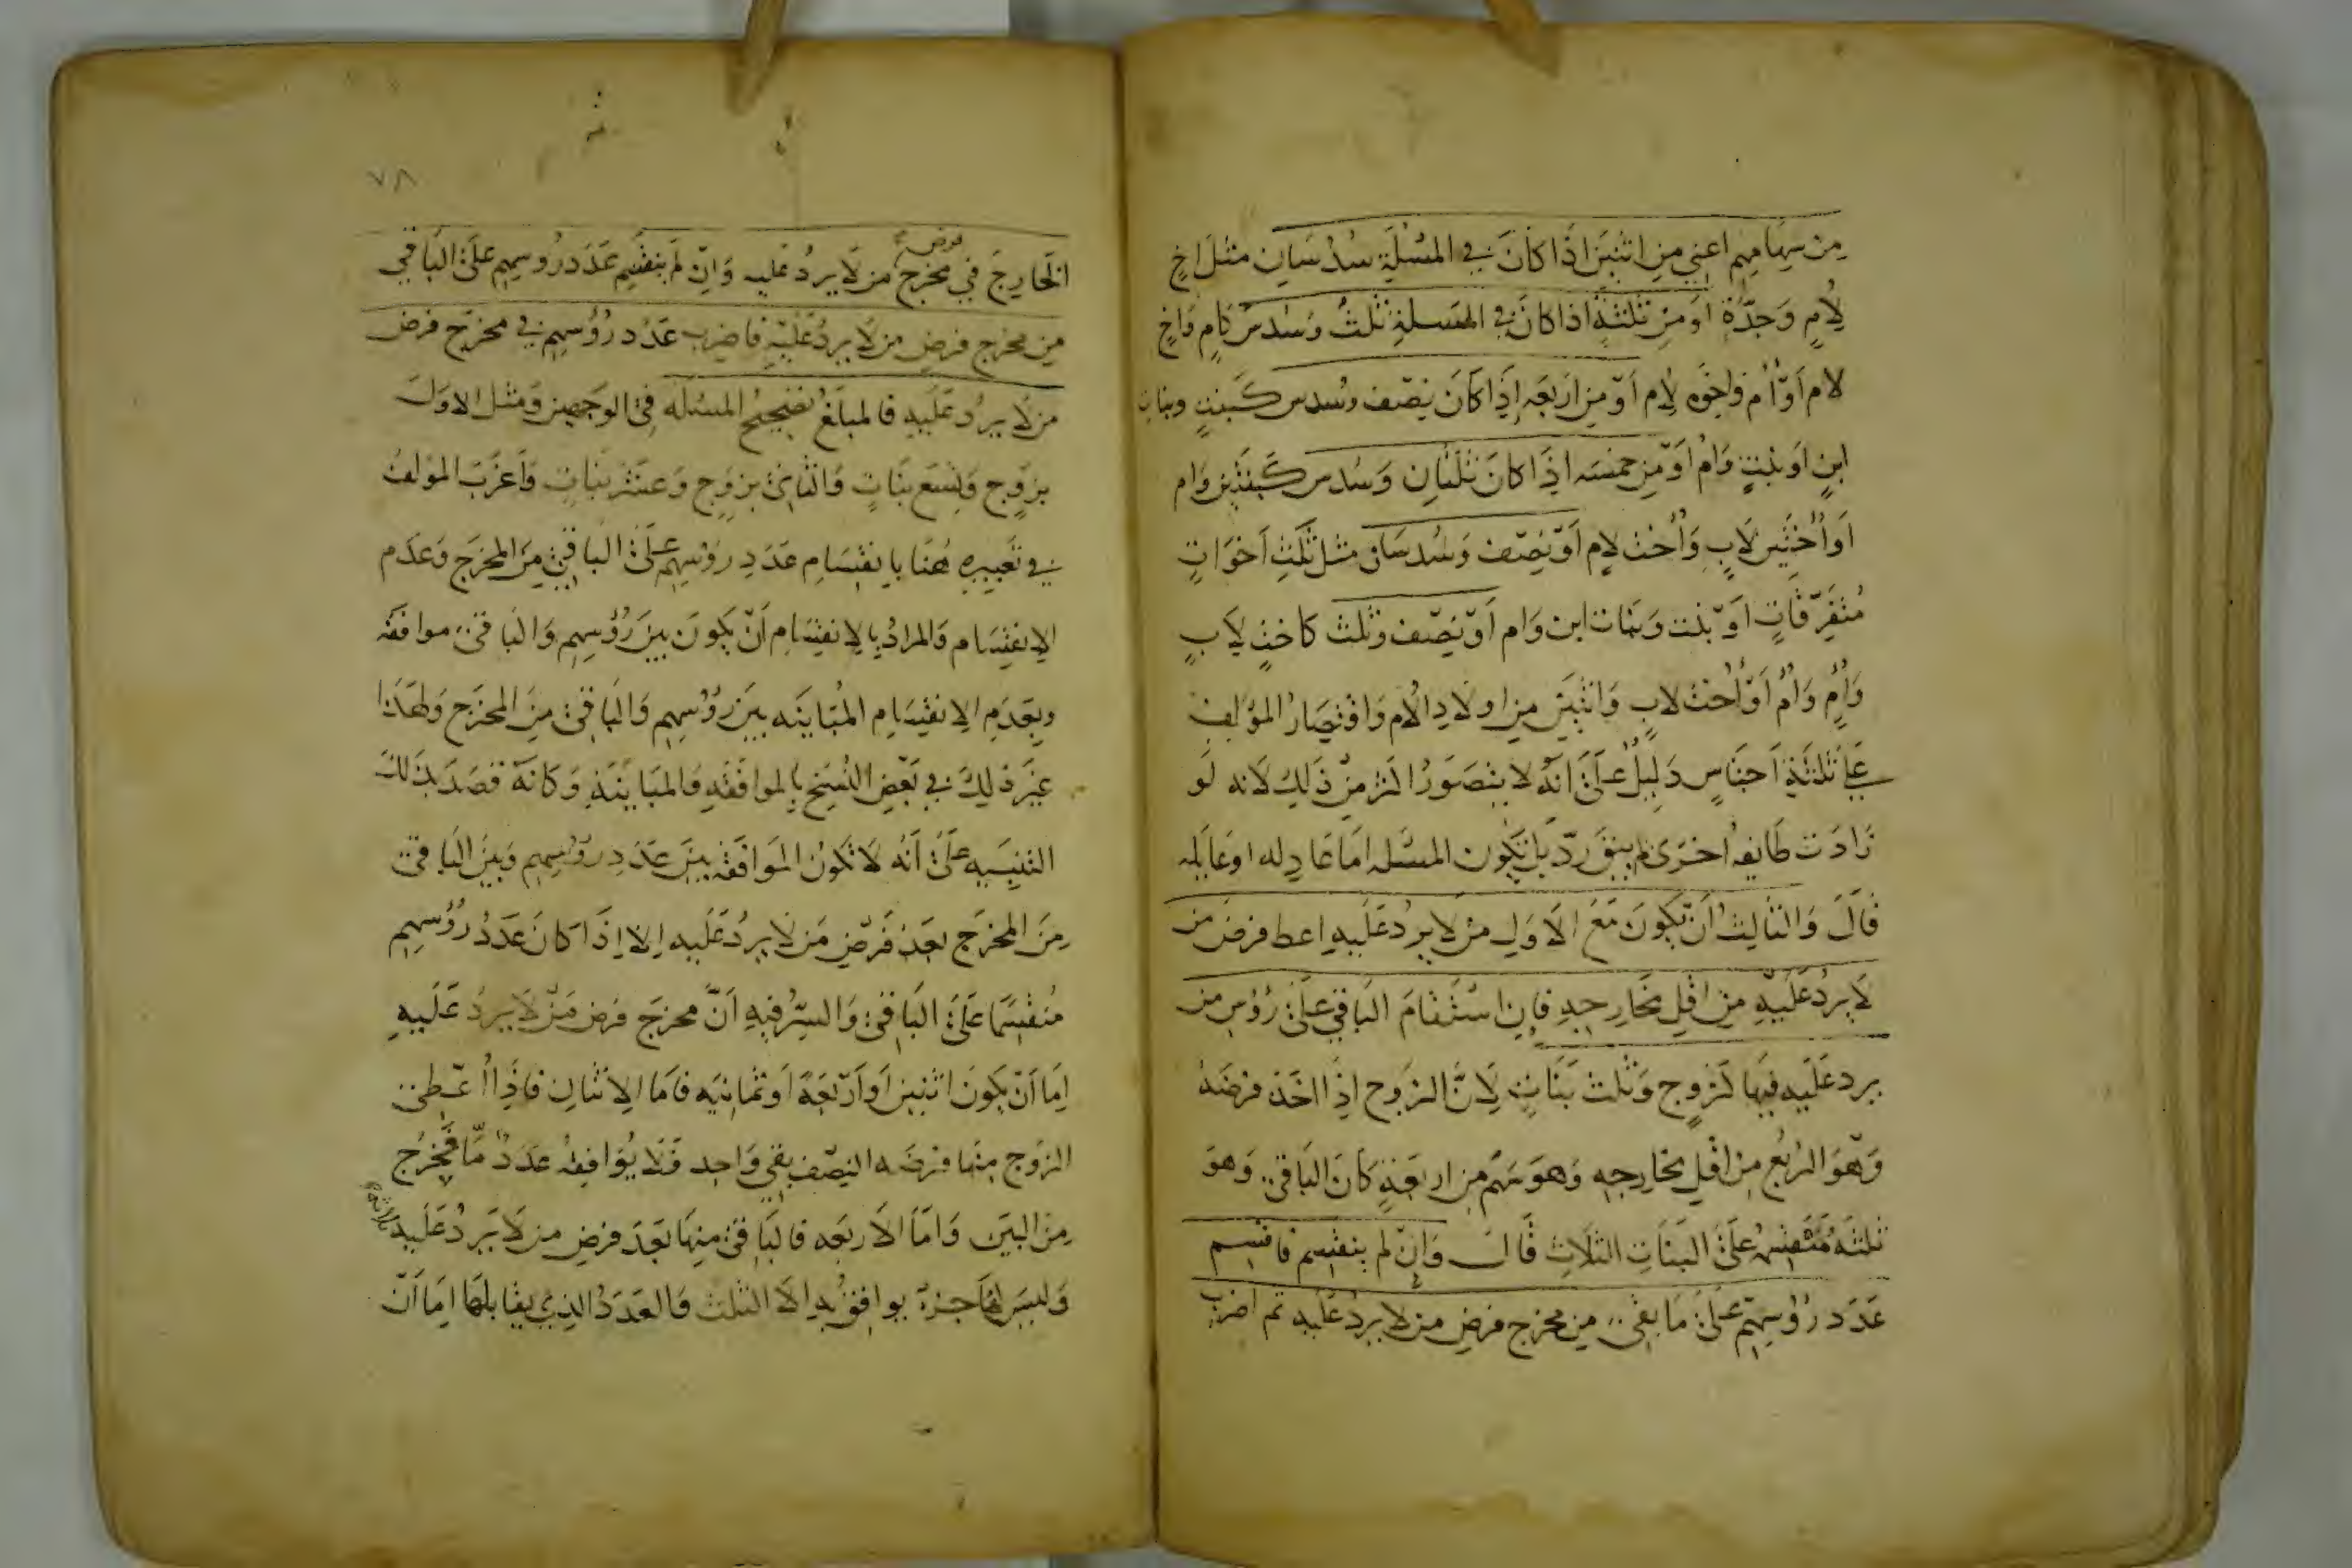 مِن سِهَامِهِم اعني مِن اثنَين اذَا كَانَ في المسْئلَةِ سُدُسَانِ مثل اخٍ
لِأمٍ وَجدَّةٍ اوَ مِن ثلثةٍ اذا كانَ في المسئلة ثلثٌ وسدسٌ كامٍ واخٍ
لام اوْ أم واخوه لِأم اوْ من اربَعَه اِذَا كَانَ نِصْف وسُدس كَبنتٍ وبناتِ
ابنٍ اوَ بنتٍ وَام اوْ مِن خمسَه اذَا كانَ ثلثانِ وَسُدس كَبنتَين وَام
اَو أختَين لاَبٍ وَأخت لاِم اَوْ نِصْف وَسُدسَان مثل ثَلثِ اَخوَاتٍ
مُتفَرِّقَاتٍ اوْ بنت وَبنات ابن وَام اَوْ نِصْف وثلث كاختٍ لاَبٍ
وَأمٍ وَأم اَوْ أُخت لابٍ وَاثنَين مِن اولادِ الأم وَاقتِصَارُ المؤلِفِ
عَلَى ثلثَةِ اَجنَاسٍ دَلِيلٌ عَلَى اَنَّهُ لا يتصَوَّرُ اكثر مِنْ ذَلِكَ لانه لَو
زَادَت طَايفه اخرَى لم يبق رَدّ بل تكون المسْئله امَا عَادِله او عَايله
قَالَ وَالثَالِثُ اَنْ يَكونَ مَعَ الاَوَلِ مَنْ لا يرد عَلَيهِ اعط فرضَ من
لا يرد عَلَيْهِ مِن اقلِ مَخارِجِهِ فاِن استقَامَ البَاقي عَلَى رُؤسِ من
يرد عَلَيه فبِهَا كزَوجٍ وَثلث بَنَاتٍ لِاَنَّ الزَوج اذَا اخَذ فرضَهُ
وَهوَ الرُبعُ مِنْ اقلِ مخارِجه وَهوَ سَهم مِن اربَعَةٍ كَانَ البَاقي وَهوَ
ثلثَةٌ مُنقسمُ عَلَى البَنَاتِ الثلَاثِ قَالَ وَاِنْ لم ينقسم فاقسِم
عَدَد رُؤسِهِم عَلَى مَا بَقى مِن مخرج فرضِ من لا يردُ عَلَيه ثم اضرب
٧٨
فرض
الخارِجَ في مخرج من لا يردُ عَليه وَاِن لَم ينقَسِم عَدَد رُؤسِهِم عَلَى البَاقي
مِن مخرج فرضِ من لا يرد عَلَيهِ فاضرب عَدَد رُؤسهِم في مخرَج فرض
من لا يردُ عَلَيهِ فالمبلَغُ تصحِيحُ المسئله في الوَجهين وَمثل الاوَلَ
بزَوجٍ وَتِسَع بنَاتٍ وَالثاني بزوجٍ وَعشر بنَاتٍ وَاَغرَبَ المؤلفُ
في تعبيرهِ هُنَا بِانقسَامِ عَدَدِ رؤسِهِم عَلَى الباقي مِنَ المخرَج وَعَدَم
الاِنقسَام وَالمرادُ بِالاِنقسَامِ اَنْ يَكونَ بينَ رُؤسِهِم وَالبَاقي موافقَه
وبِعَدَمِ الاِنقسَامِ المُبَاينَه بين رؤسِهِم وَالبَاقي مِنَ المخرَج وَلهَذا
غيَّرَ ذلِكَ في بَعْضِ النُسَخِ بِالموافَقَهِ وَالمبَاينَةِ وَكَانَهُ قصَدَ بذَلكَ
التنبِيه عَلَى اَنّهُ لا تَكونُ الموَافقَه بينَ عَدَدِ رؤسِهِم وَبَينَ البَاقي
مِنَ المخرَج بعَد فَرْضِ مَن لا يردُ عَلَيه اِلا اِذَا كانَ عَدَدُ رُؤسِهِم
مُنقسِمًا عَلَى البَاقي وَالسِرُ فيهِ اَنَّ مخرَج فرض مَنْ لا يردُ عَلَيهِ
اِمَا اَنْ يَكونَ اثنين اَو اَرْبَعَةً اَو ثمانيَه فامَا الاِثنَانِ فاِذَا اُعْطِى
الزَوج مِنهَا فرضَه النِصْف بقي وَاحِد فَلَا يُوَافِقهُ عَدَدٌ مَّا فيَخْرُج
مِن البَين وَامَّا الاَربَعَه فالبَاقي مِنهَا بَعَد فرضِ من لا يَردُ عَلَيه
وَليسَ لهَا جزءٌ يوافِقُ بِهِ الاَ الثلث وَالعَدَدُ الذي يقابِلهَا اِمَا اَنْ